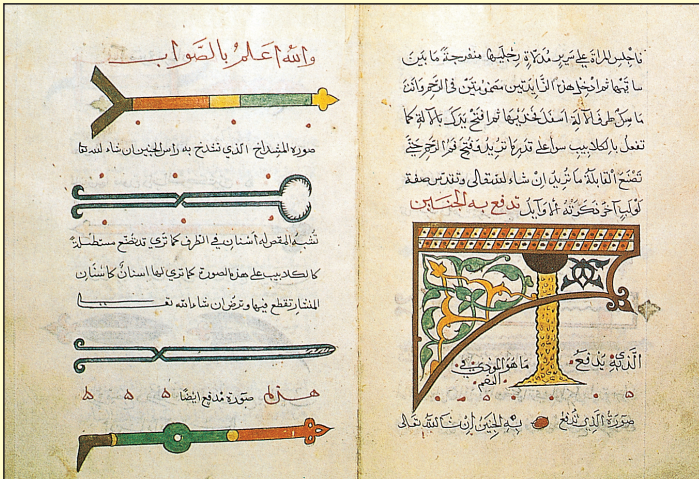 فاجلس المراة على سرير مدلاة رجليها منفرجة ما بين
ساقيها ثم ادخل هذا الزايدتين في الرحم وانت
ماسك طرف الالة اسفل فخذيها ثم افتح يدك بالالة كما
تفعل بالكلاليب سوا على قدر ما تريد فتح فم الرحم حتى
تصنع القابلة ما تريد ان شاء الله تعالى صفة
لولب آخر ذكرته الاوايل تدفع به الجنين
الذي يدفع ما هو المودي في
صورة الذي تدفع به الجنين ان شا الله تعالى
والله اعلم بالصواب
صورة المشداخ الذي تشدخ به راس الجنين ان شاء الله تعا
تشبه المقص له اسنان في الطرف كما ترى وقد تصنع مستطيلة
كالكلاليب على هذه الصورة كما ترى لها اسنان كاسنان
المنشار تقطع فيها وترض ان شاء الله تعا
هذه صورة مدفع ايضا ه ه ه